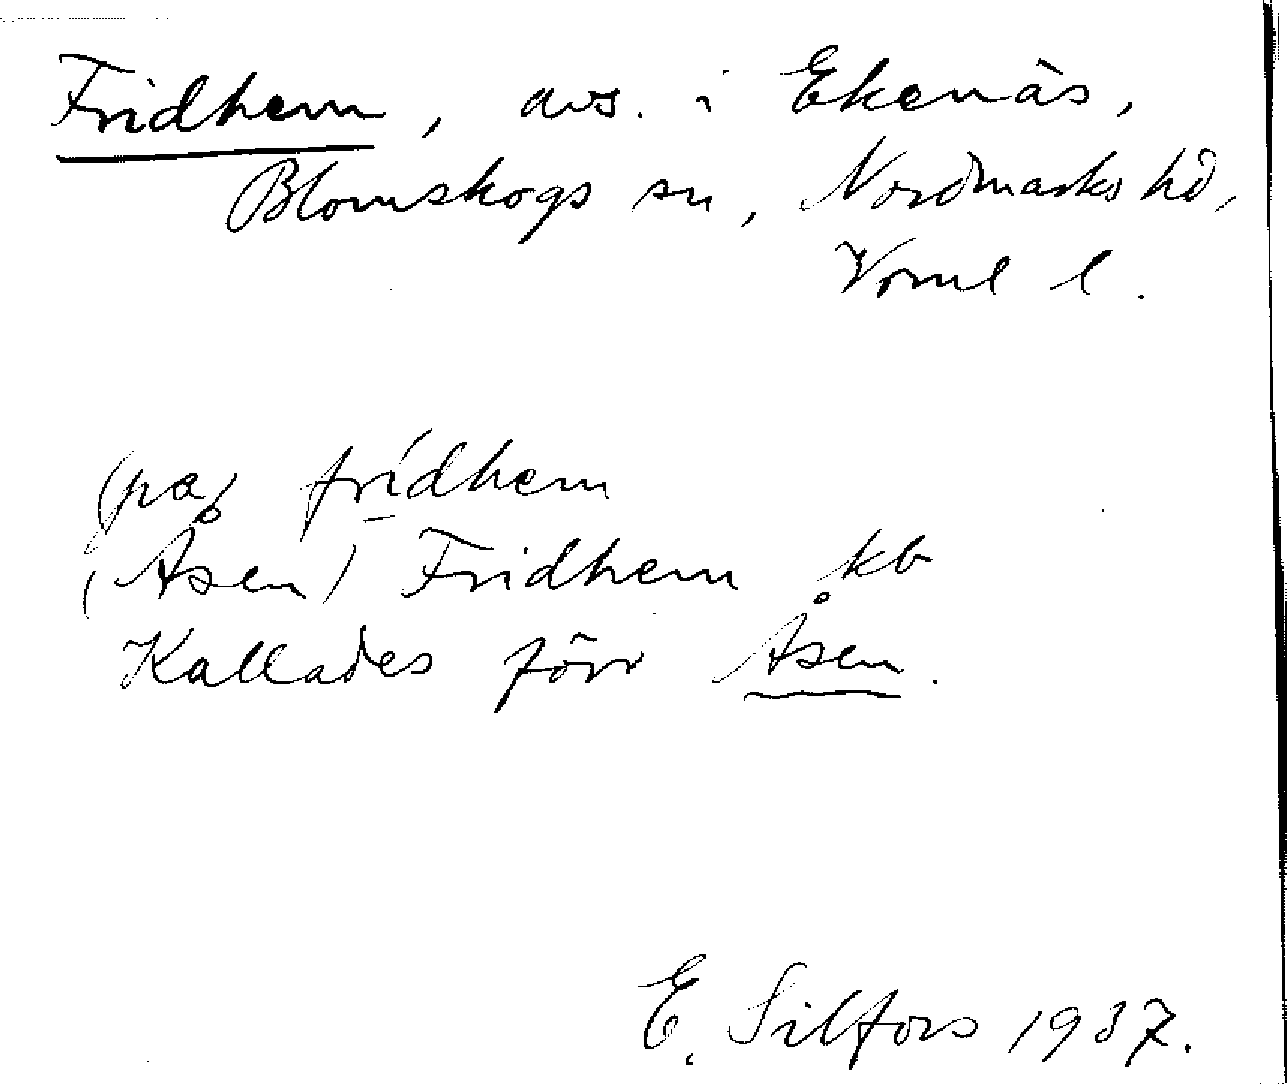 Fridhem, avs. i Ekenäs,
Blomskogs sn, Nordmarks hd,
Vrml l.
(pa) fridhem
(Åsen) Fridhem kb
Kallades förr Åsen.
E. Silfors 1937.